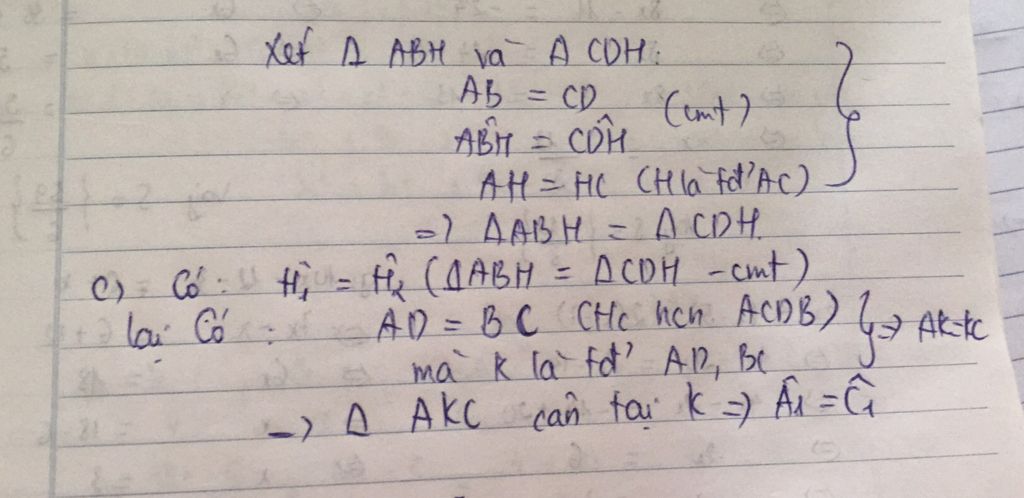 Xét Δ ABH và Δ CDH:
AB = CD
AB̂H = CD̂H (cmt)
AH = HC (H là tđ' AC)
=> ΔABH = Δ CDH.
c) Có: Ĥ₁ = Ĥ₂ (ΔABH = ΔCDH - cmt)
lại Có: AD = BC (Hc hcn ACDB) } => AK=KC
mà K là tđ' AD, BC
-> Δ AKC cân tại K => Â₁ = Ĉ₁